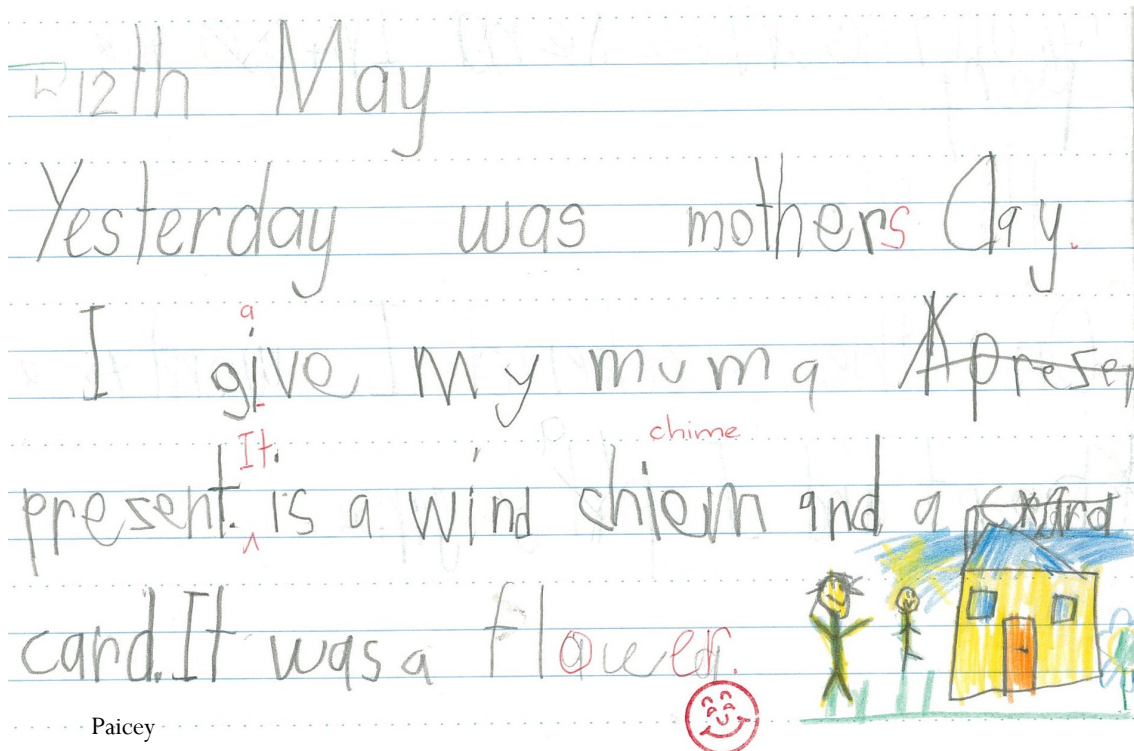 12th May
Yesterday was mothers day.
a
I give my mum a A presen
It. chime
present. is a wind chiem and a card
card. It was a flower.
Paicey